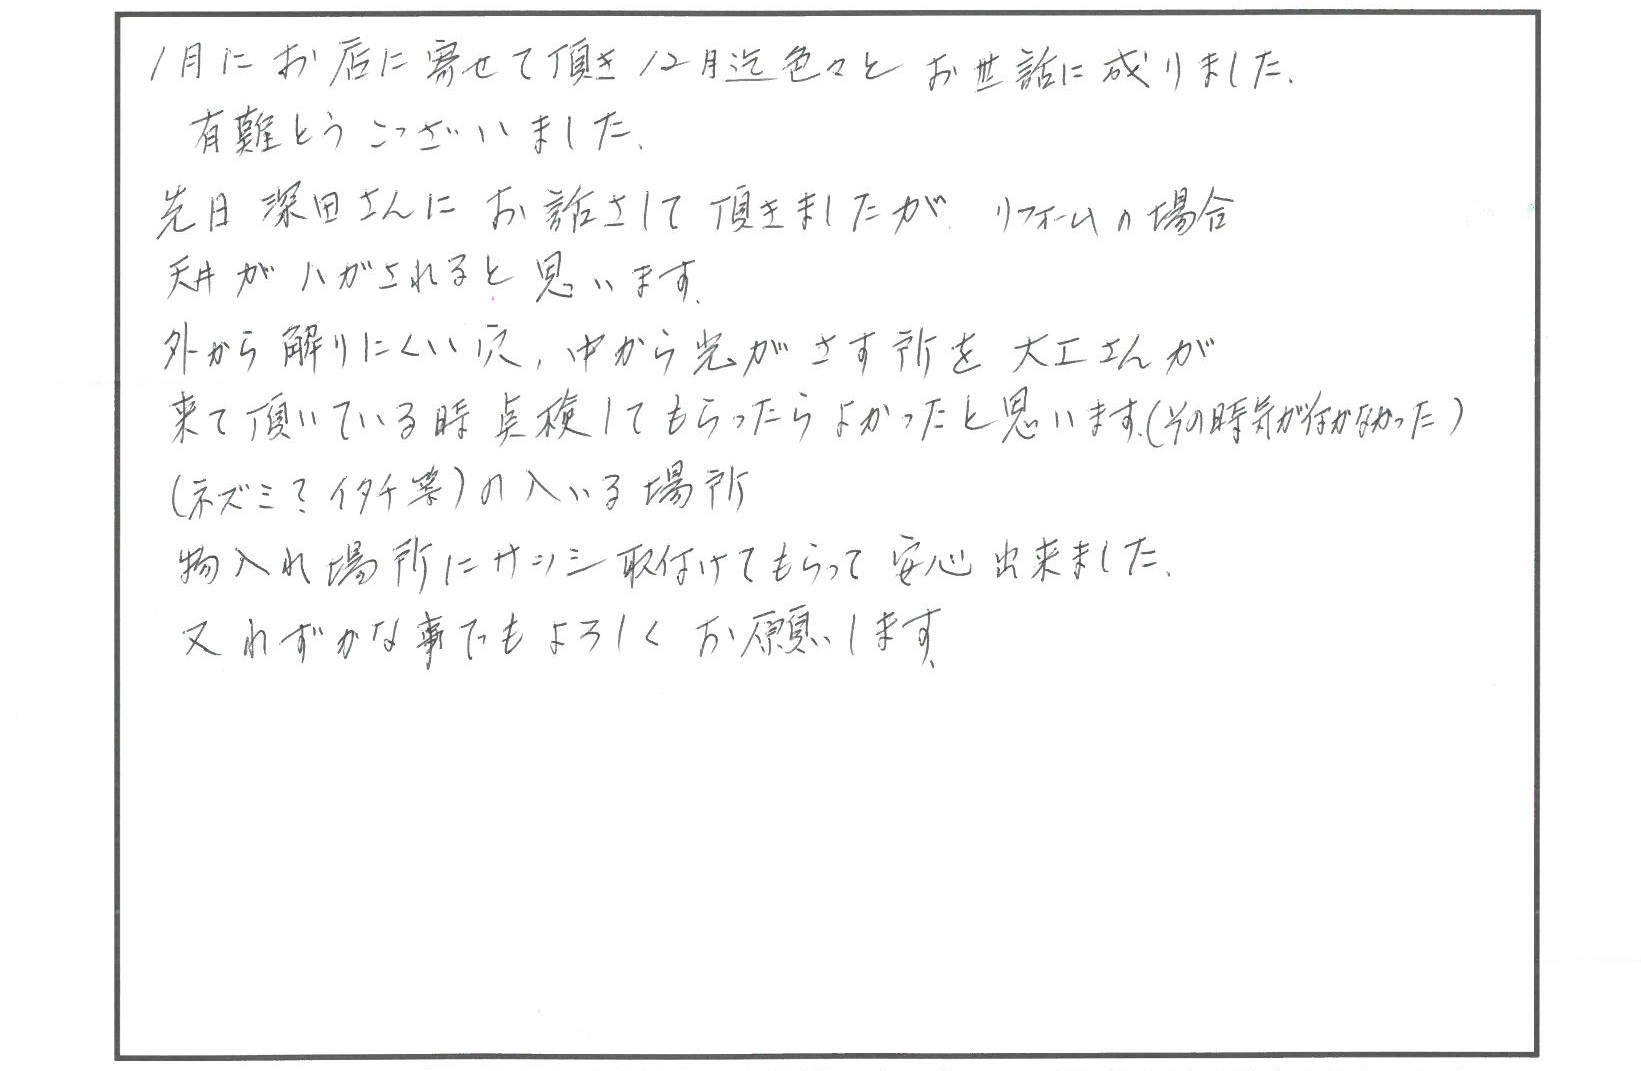 1月にお店に寄せて頂き12月迄色々とお世話に成りました.
有難とうございました.
先日深田さんにお話さして頂きましたが リフォームの場合
天井がハがされると思います.
外から解りにくい穴,中から光がさす所を大工さんが
来て頂いている時点検してもらったらよかったと思います.(その時気が付かなかった)
(ネズミ?イタチ等)の入いる場所
物入れ場所にサッシ取付けてもらって安心出来ました.
又わずかな事でもよろしくお願いします.